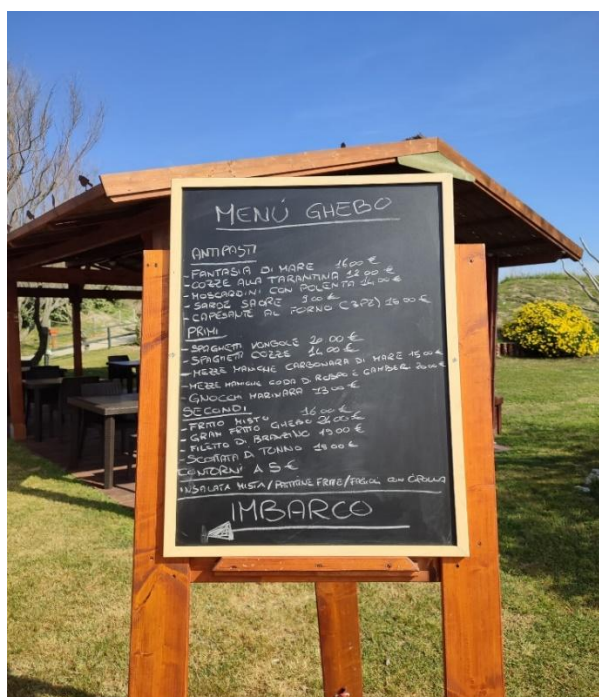 MENÚ GHEBO
ANTIPASTI
- FANTASIA DI MARE 16.00 €
- COZZE ALLA TARANTINA 12.00 €
- MOSCARDINI CON POLENTA 14.00 €
- SARDE SAORE 9.00 €
- CAPESANTE AL FORNO (3PZ) 15.00 €
PRIMI
- SPAGHETTI VONGOLE 20.00 €
- SPAGHETTI COZZE 14.00 €
- MEZZE MANICHE CARBONARA DI MARE 15.00 €
- MEZZE MANICHE CODA DI ROSPO E GAMBERI 20.00 €
- GNOCCHI MARINARA 13.00 €
SECONDI
- FRITTO MISTO 16.00 €
- GRAN FRITTO GHEBO 24.00 €
- FILETTO DI BRANZINO 19.00 €
- SCOTTATA DI TONNO 18.00 €
CONTORNI A 5 €
INSALATA MISTA / PATATINE FRITTE / FAGIOLI CON CIPOLLA
IMBARCO